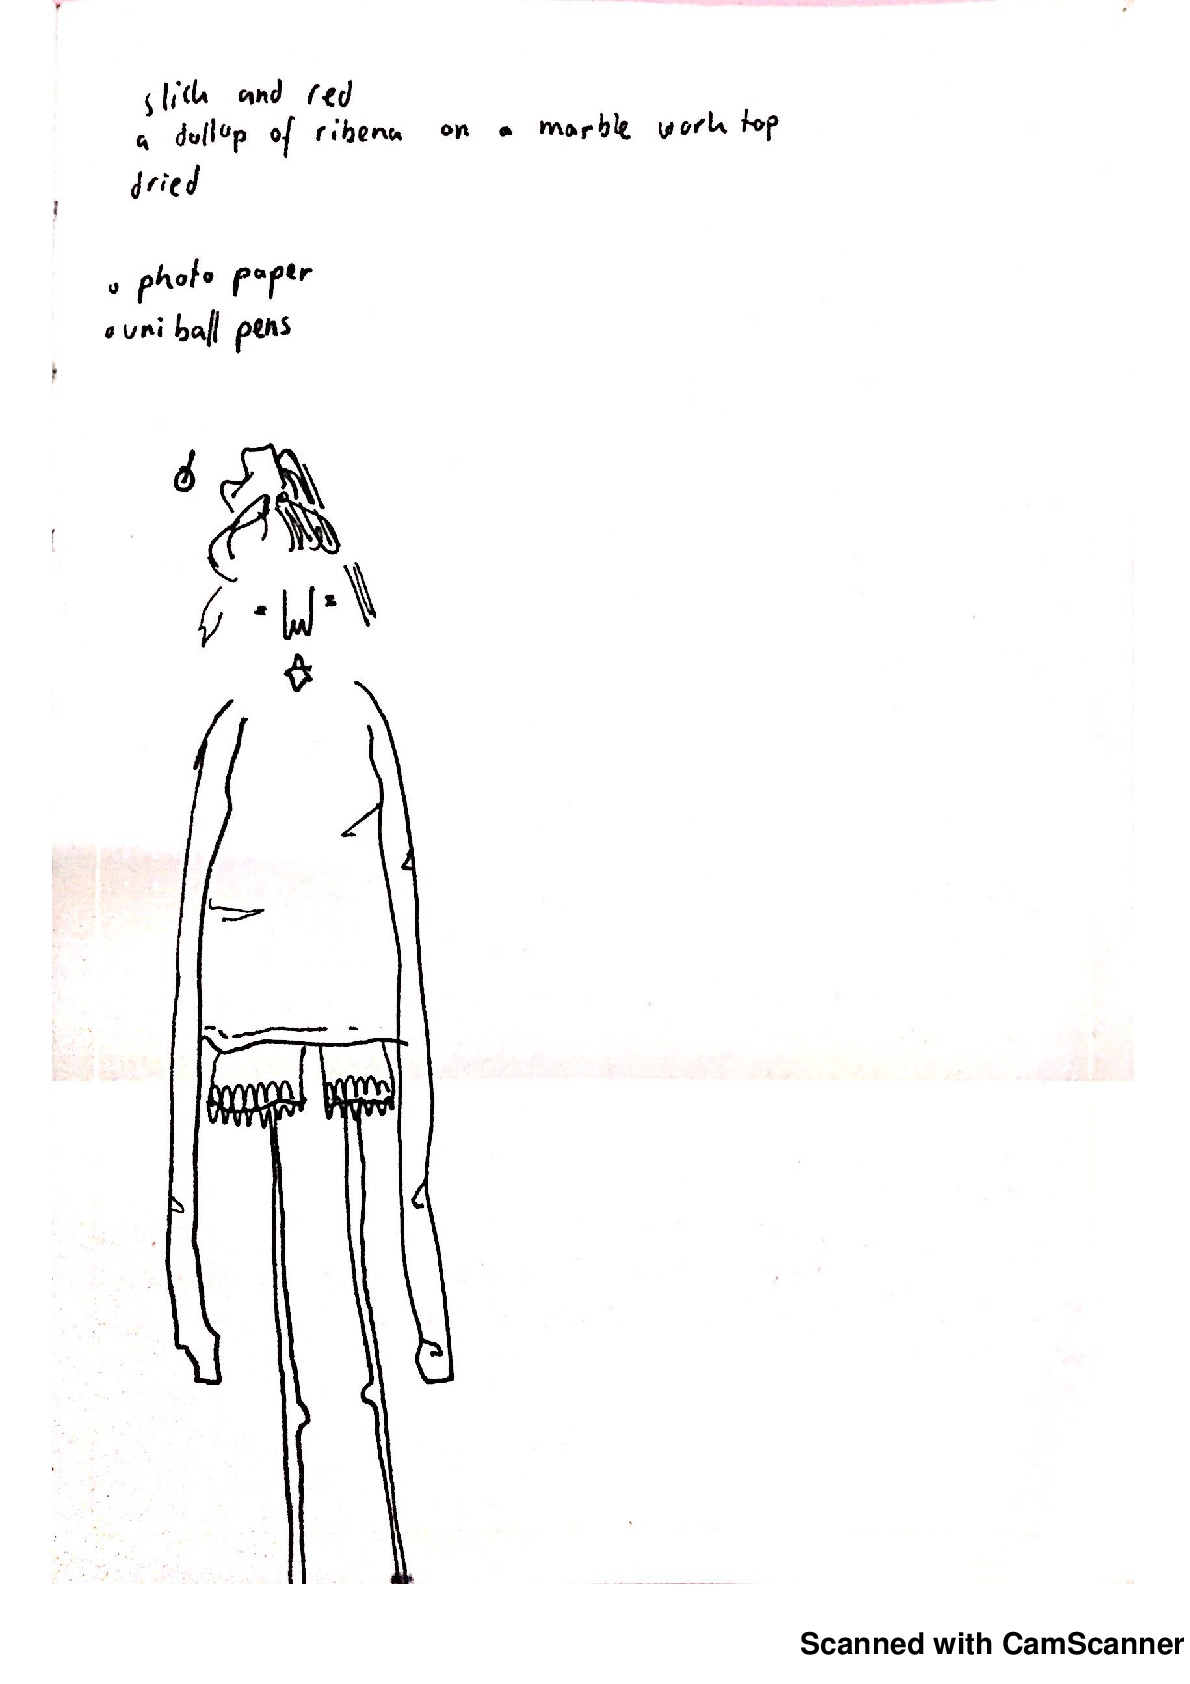 slick and red
a dullop of ribena on a marble work top
dried
photo paper
uni ball pens
Scanned with CamScanner